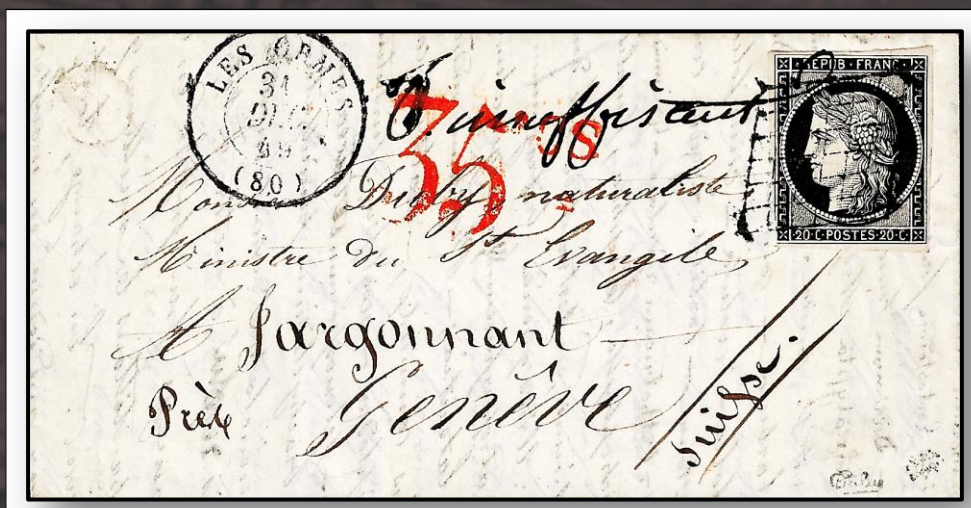 LES ORMES
31
(80)
insuffisant
35 cs
REPUB·FRANC·
20·C·POSTES·20·C·
Monsieur Duby, naturaliste
Ministre du St Evangile
A Jargonnant
Près Genève
Suisse.